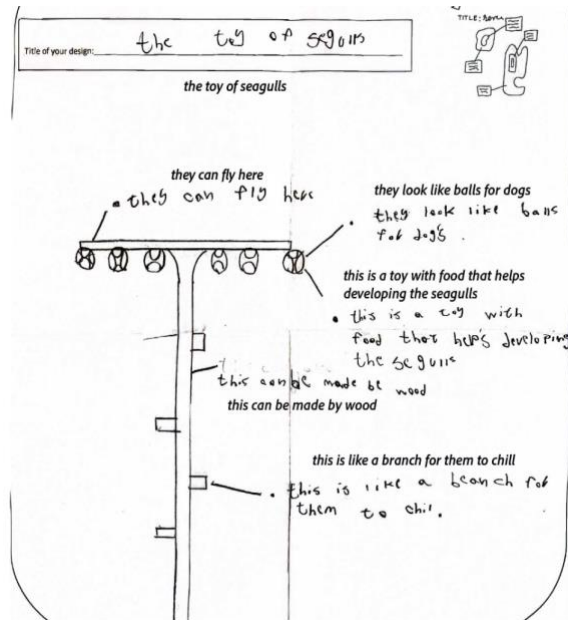 TITLE:
Title of your design: the toy of segulls
the toy of seagulls
they can fly here
they can fly here
they look like balls for dogs
they look like balls
for dog's.
this is a toy with food that helps
developing the seagulls
this is a toy with
food that help's developing
the segulls
this can be made be wood
this can be made by wood
this is like a branch for them to chill
this is like a branch for
them to chil.